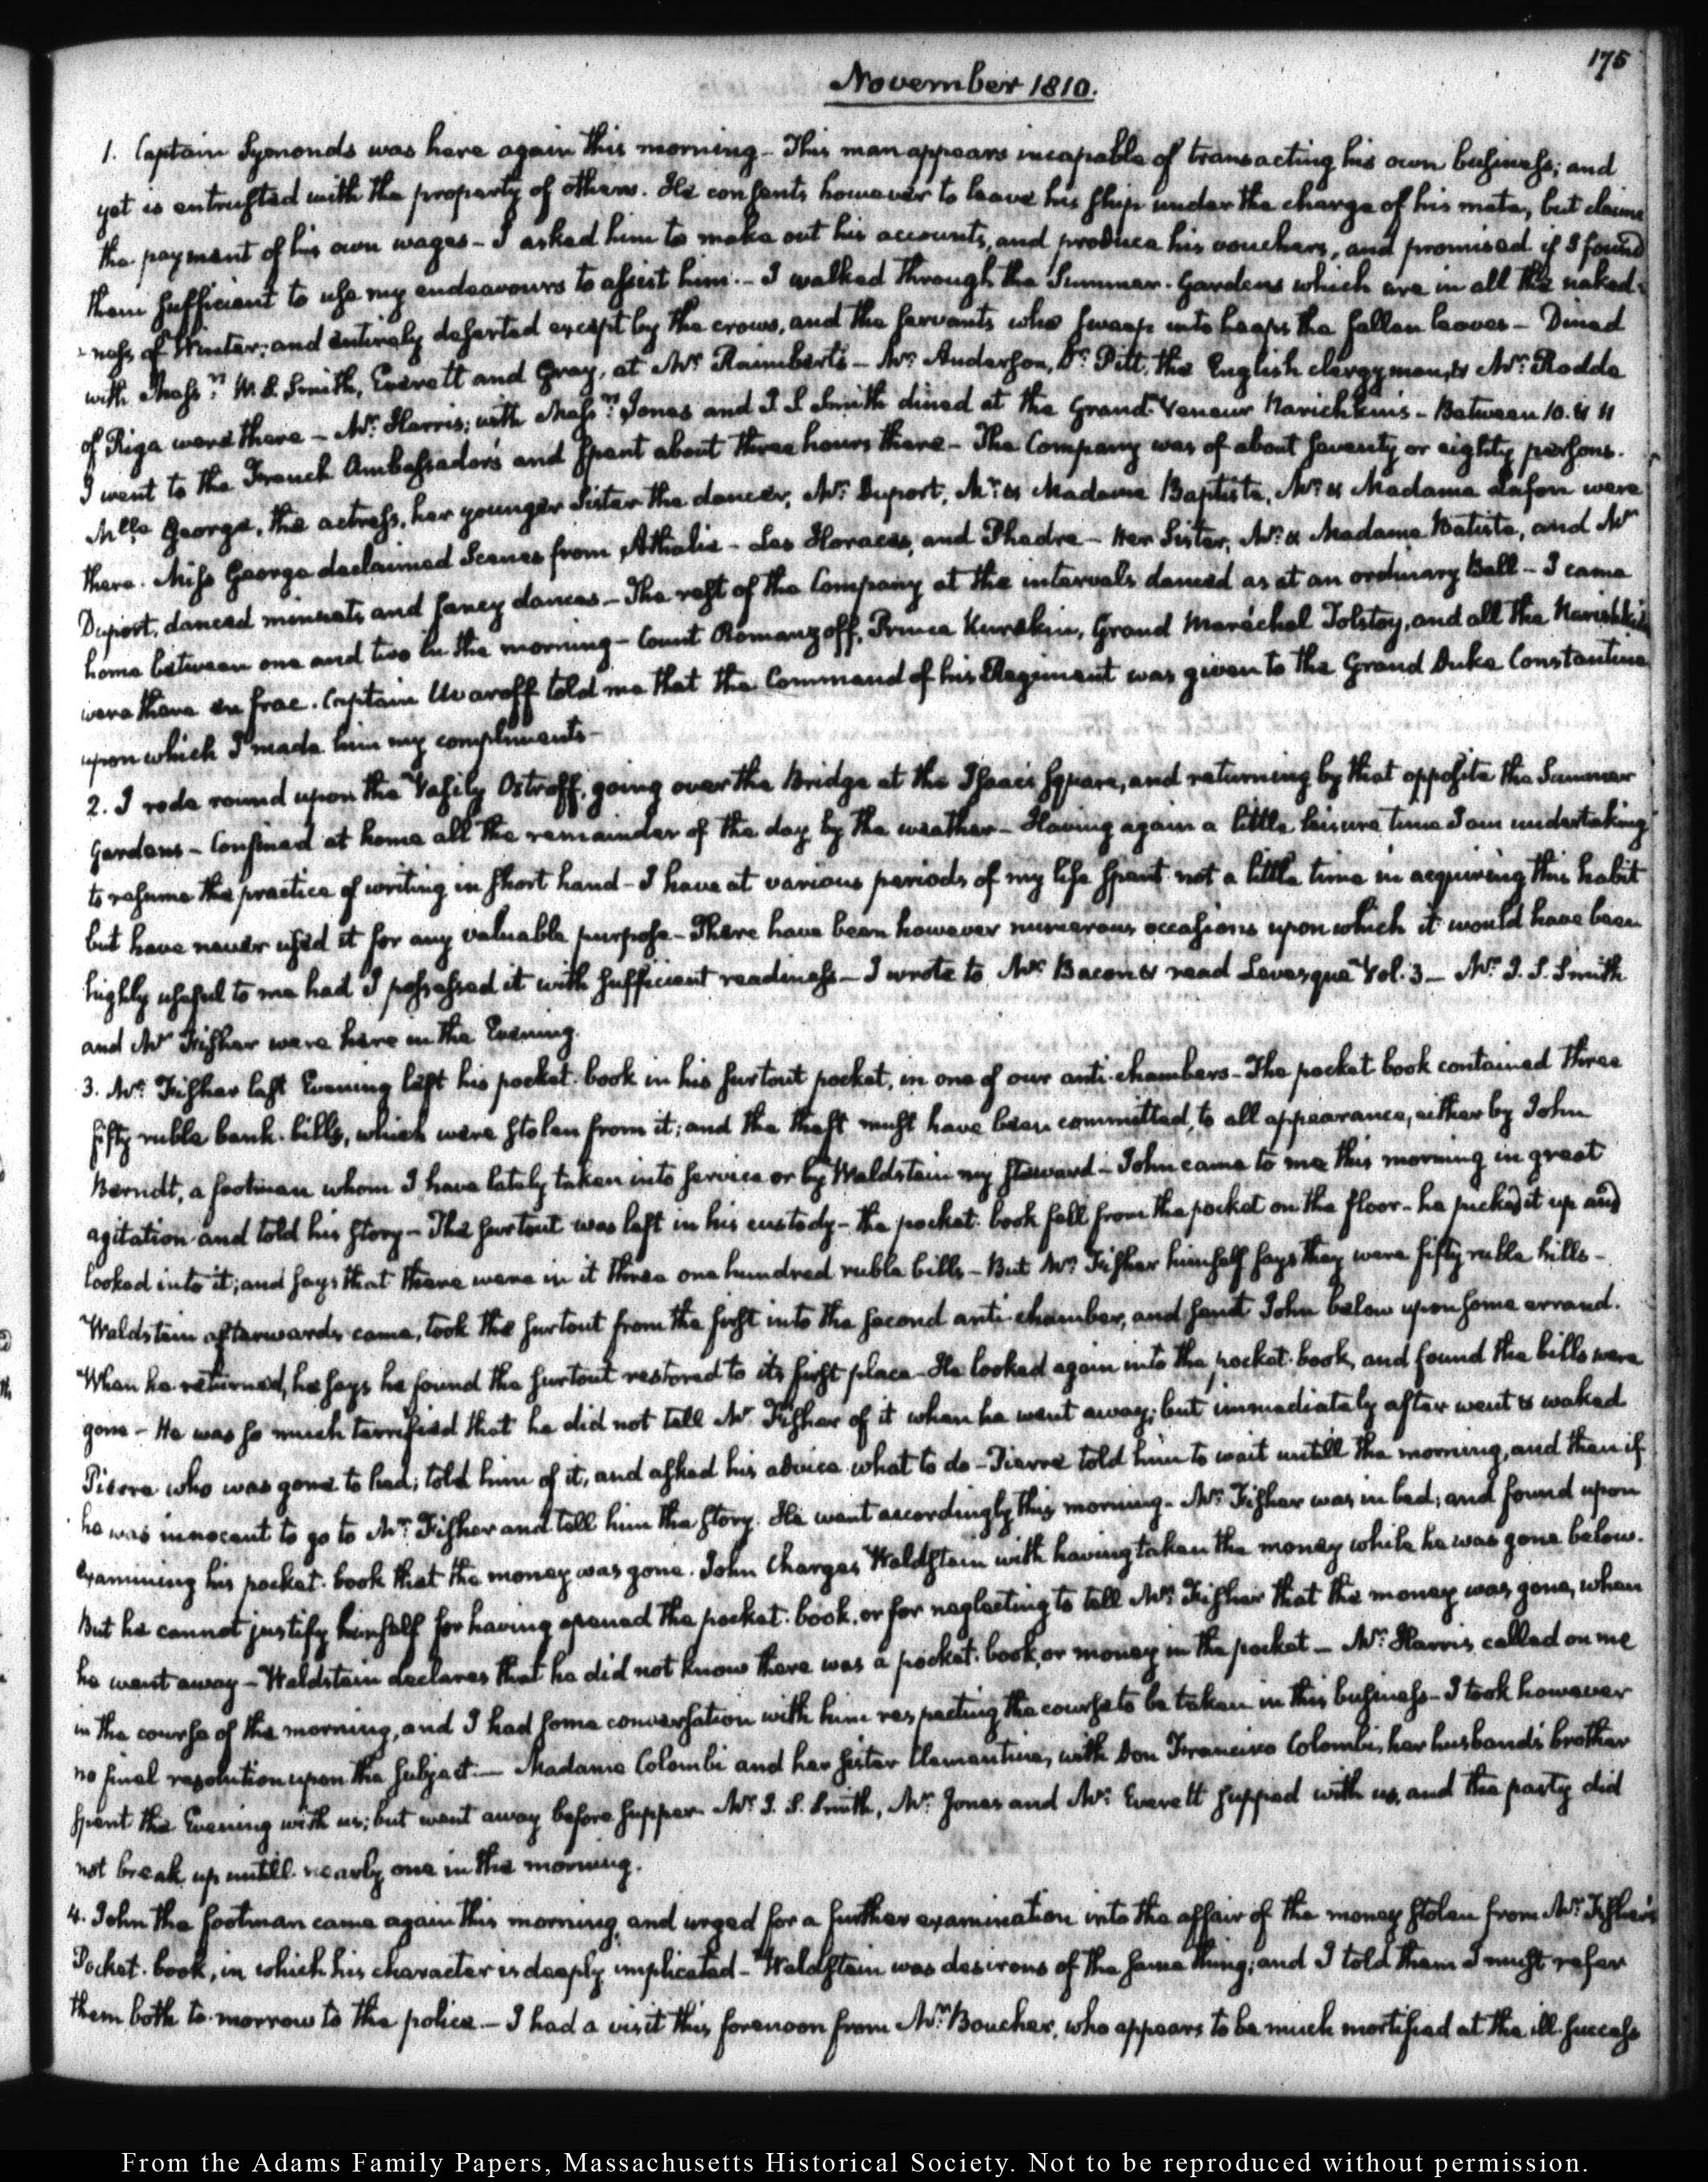 175
November 1810.
1. Captain Symonds was here again this morning – This man appears incapable of transacting his own business; and
yet is entrusted with the property of others. He consents however to leave his ship under the charge of his mate, but claims
the payment of his own wages – I asked him to make out his accounts, and produce his vouchers, and promised if I found
them sufficient to use my endeavours to assist him. – I walked through the Summer-Gardens which are in all the naked-
-ness of Winter; and entirely deserted except by the crows, and the servants who sweep into heaps the fallen leaves – Dined
with Messrs. W. S. Smith, Everett and Gray, at Mr. Raimbert's – Mr. Anderson, Dr. Pitt, the English clergyman, & Mr. Rodde
of Riga were there – Mr. Harris; with Messrs. Jones and J. S. Smith dined at the Grand Veneur Narichkin's – Between 10. & 11
I went to the French Ambassador's and spent about three hours there – The Company was of about seventy or eighty persons.
Mlle. George, the actress, her younger Sister the dancer, Mr. Duport, Mr. & Madame Baptiste, Mr. & Madame Lafon were
there. Miss George declaimed Scenes from Athalie – Les Horaces, and Phedre – Her Sister, Mr. & Madame Batiste, and Mr
Duport, danced minuets and fancy dances – The rest of the Company at the intervals danced as at an ordinary Ball – I came
home between one and two in the morning – Count Romanzoff, Prince Kurakin, Grand Maréchal Tolstoy, and all the Narishkin's
were there en frac. Captain Uwaroff told me that the Command of his Regiment was given to the Grand Duke Constantine
upon which I made him my compliments –
2. I rode round upon the Vasily Ostroff, going over the Bridge at the Isaac's Square, and returning by that opposite the Summer
Gardens – Confined at home all the remainder of the day by the weather – Having again a little leisure time I am undertaking
to resume the practice of writing in short hand – I have at various periods of my life spent not a little time in acquiring this habit
but have never used it for any valuable purpose – There have been however numerous occasions upon which it would have been
highly useful to me had I possessed it with sufficient readiness – I wrote to Mr. Bacon & read Levesque Vol. 3 – Mr. J. S. Smith
and Mr Fisher were here in the Evening.
3. Mr. Fisher last Evening left his pocket-book in his surtout pocket, in one of our anti-chambers – The pocket book contained three
fifty ruble bank-bills, which were stolen from it; and the theft must have been committed, to all appearance, either by John
Berndt, a footman whom I have lately taken into service or by Waldstein my steward – John came to me this morning in great
agitation and told his story – The surtout was left in his custody – the pocket-book fell from the pocket on the floor – he picked it up and
looked into it; and says that there were in it three one hundred ruble bills – But Mr. Fisher himself says they were fifty ruble bills –
Waldstein afterwards came, took the surtout from the first into the second anti-chamber, and sent John below upon some errand.
When he returned, he says he found the surtout restored to its first place – He looked again into the pocket-book, and found the bills were
gone – He was so much terrified that he did not tell Mr. Fisher of it when he went away; but immediately after went & waked
Pierre who was gone to bed; told him of it, and asked his advice what to do – Pierre told him to wait untill the morning, and then if
he was innocent to go to Mr. Fisher and tell him the story. He went accordingly this morning – Mr. Fisher was in bed; and found upon
examining his pocket-book that the money was gone. John Charges Waldstein with having taken the money while he was gone below.
But he cannot justify himself for having opened the pocket-book, or for neglecting to tell Mr. Fisher that the money was gone, when
he went away – Waldstein declares that he did not know there was a pocket-book, or money in the pocket – Mr. Harris called on me
in the course of the morning, and I had some conversation with him respecting the course to be taken in this business – I took however
no final resolution upon the subject. – Madame Colombi and her sister Clementine, with Don Francisco Colombi, her husband's brother
spent the Evening with us; but went away before supper – Mr. J. S. Smith, Mr. Jones and Mr. Everett supped with us, and the party did
not break up untill nearly one in the morning.
4. John the footman came again this morning, and urged for a further examination into the affair of the money stolen from Mr. Fisher's
Pocket-book, in which his character is deeply implicated – Waldstein was desirous of the same thing; and I told them I must refer
them both to-morrow to the police – I had a visit this forenoon from Mr. Boucher, who appears to be much mortified at the ill-success
From the Adams Family Papers, Massachusetts Historical Society. Not to be reproduced without permission.